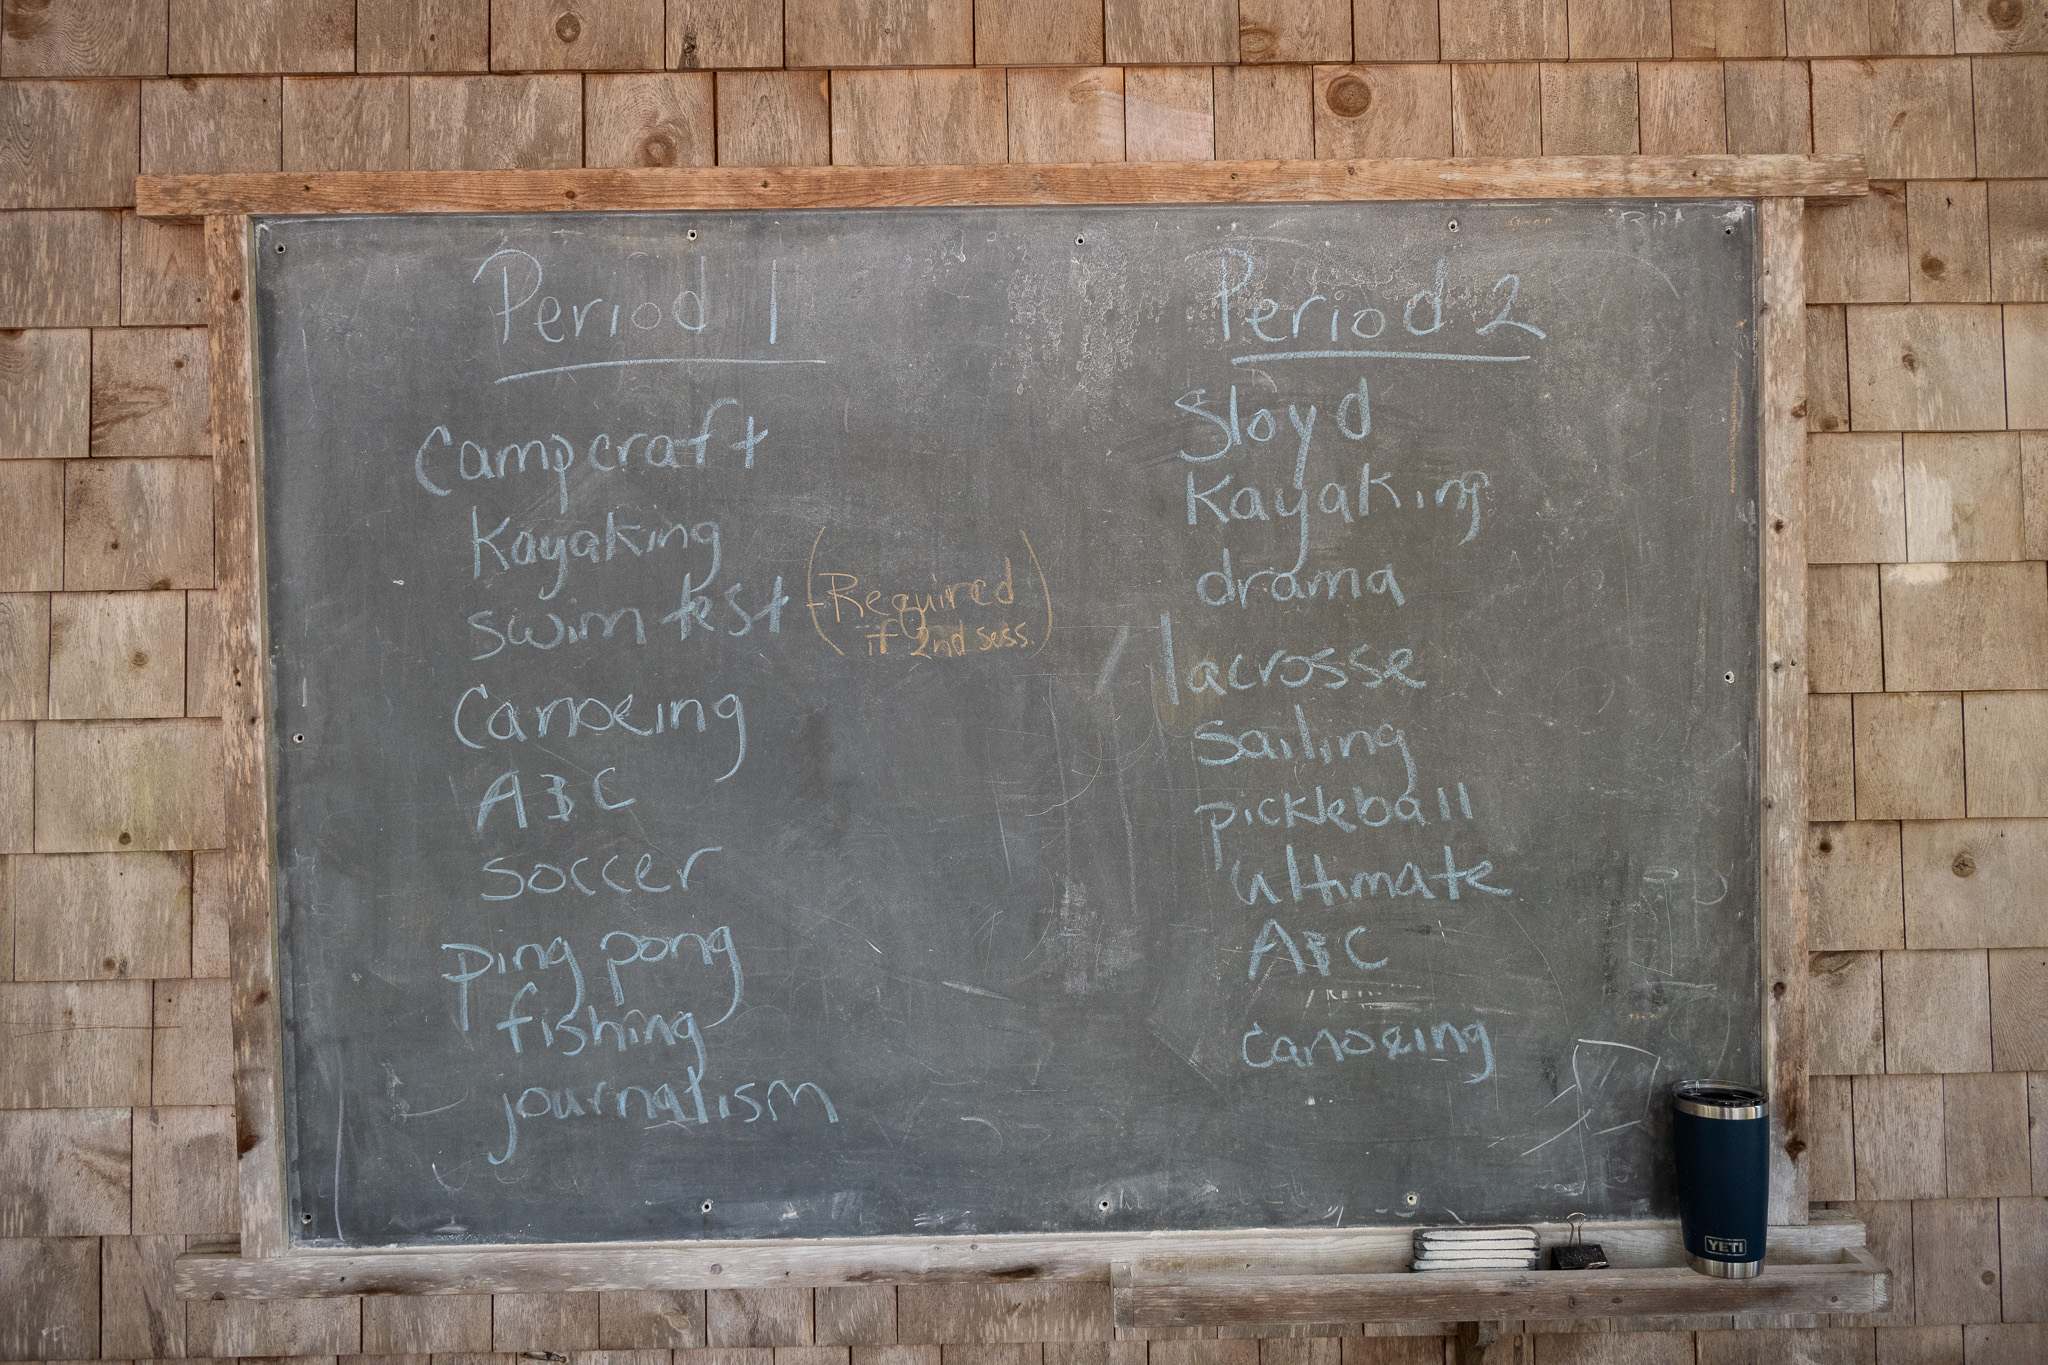 Period 1
Campcraft
Kayaking
swim test (Required
if 2nd sess.)
Canoeing
A&C
soccer
ping pong
fishing
journalism
Period 2
Sloyd
Kayaking
drama
lacrosse
Sailing
pickleball
ultimate
A&C
canoeing
YETI